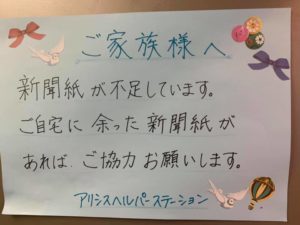 ご家族様へ
新聞紙が不足しています。
ご自宅に余った新聞紙が
あれば、ご協力お願いします。
アリシスヘルパーステーション